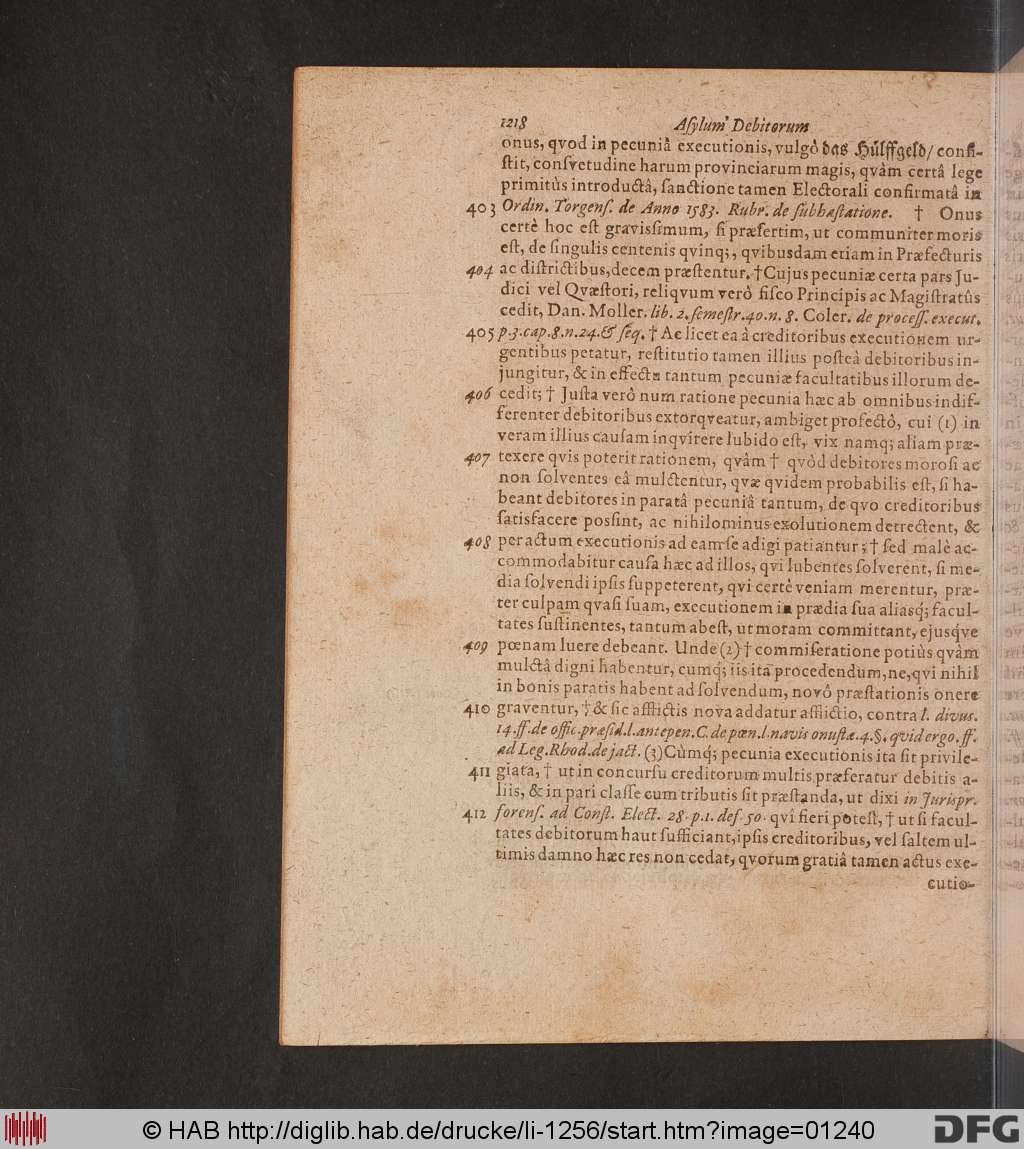 1218 Aſylum Debitorum
onus, qvod in pecuniâ executionis, vulgò das Hülffgeld/ conſi-
ſtit, conſvetudine harum provinciarum magis, qvàm certâ lege
primitùs introductâ, ſanctione tamen Electorali confirmatâ in
403 Ordin. Torgenſ. de Anno 1583. Rubr. de ſubhaſtatione. † Onus
certè hoc eſt graviſſimum, ſi præſertim, ut communiter moris
eſt, de ſingulis centenis qvinq;, qvibusdam etiam in Præfecturis
404 ac diſtrictibus, decem præſtentur. † Cujus pecuniæ certa pars Ju-
dici vel Qvæſtori, reliqvum verò fiſco Principis ac Magiſtratûs
cedit, Dan. Moller. lib. 2. ſemeſtr. 40. n. 8. Coler. de proceſſ. execut.
405 p. 3. cap. 8. n. 24. & ſeq. † Ac licet ea à creditoribus executionem ur-
gentibus petatur, reſtitutio tamen illius poſteà debitoribus in-
jungitur, & in effectu tantum pecuniæ facultatibus illorum de-
406 cedit; † Juſta verò num ratione pecunia hæc ab omnibus indif-
ferenter debitoribus extorqveatur, ambiget profectò, cui (1) in
veram illius cauſam inqvirere lubido eſt, vix namq; aliam præ-
407 texere qvis poterit rationem, qvâm † qvòd debitores moroſi ac
non ſolventes eâ mulctentur, qvæ qvidem probabilis eſt, ſi ha-
beant debitores in paratâ pecuniâ tantum, de qvo creditoribus
ſatisfacere poſſint, ac nihilominus exolutionem detrectent, &
408 per actum executionis ad eam ſe adigi patiantur; † ſed malè ac-
commodabitur cauſa hæc ad illos, qvi lubentes ſolverent, ſi me-
dia ſolvendi ipſis ſuppeterent, qvi certè veniam merentur, præ-
ter culpam qvaſi ſuam, executionem in prædia ſua aliasq; facul-
tates ſuſtinentes, tantum abeſt, ut moram committant, ejusqve
409 pœnam luere debeant. Unde (2) † commiſeratione potiùs qvàm
mulctâ digni habentur, cumq; iis ita procedendum, ne, qvi nihil
in bonis paratis habent ad ſolvendum, novô præſtationis onere
410 graventur, † & ſic afflictis nova addatur afflictio, contra l. divus.
14. ff. de offic. præſid. l. antepen. C. de pœn. l. navis onuſtæ. 4. §. qvid ergo. ff.
ad Leg. Rhod. de jact. (3) Cùmq; pecunia executionis ita ſit privile-
411 giata, † ut in concurſu creditorum multis præferatur debitis a-
liis, & in pari claſſe cum tributis ſit præſtanda, ut dixi in Jurispr.
412 forenſ. ad Conſt. Elect. 28. p. 1. def. 50. qvî fieri poteſt, † ut ſi facul-
tates debitorum haut ſufficiant, ipſis creditoribus, vel ſaltem ul-
timis damno hæc res non cedat, qvorum gratiâ tamen actus exe-
cutio-
© HAB http://diglib.hab.de/drucke/li-1256/start.htm?image=01240
DFG